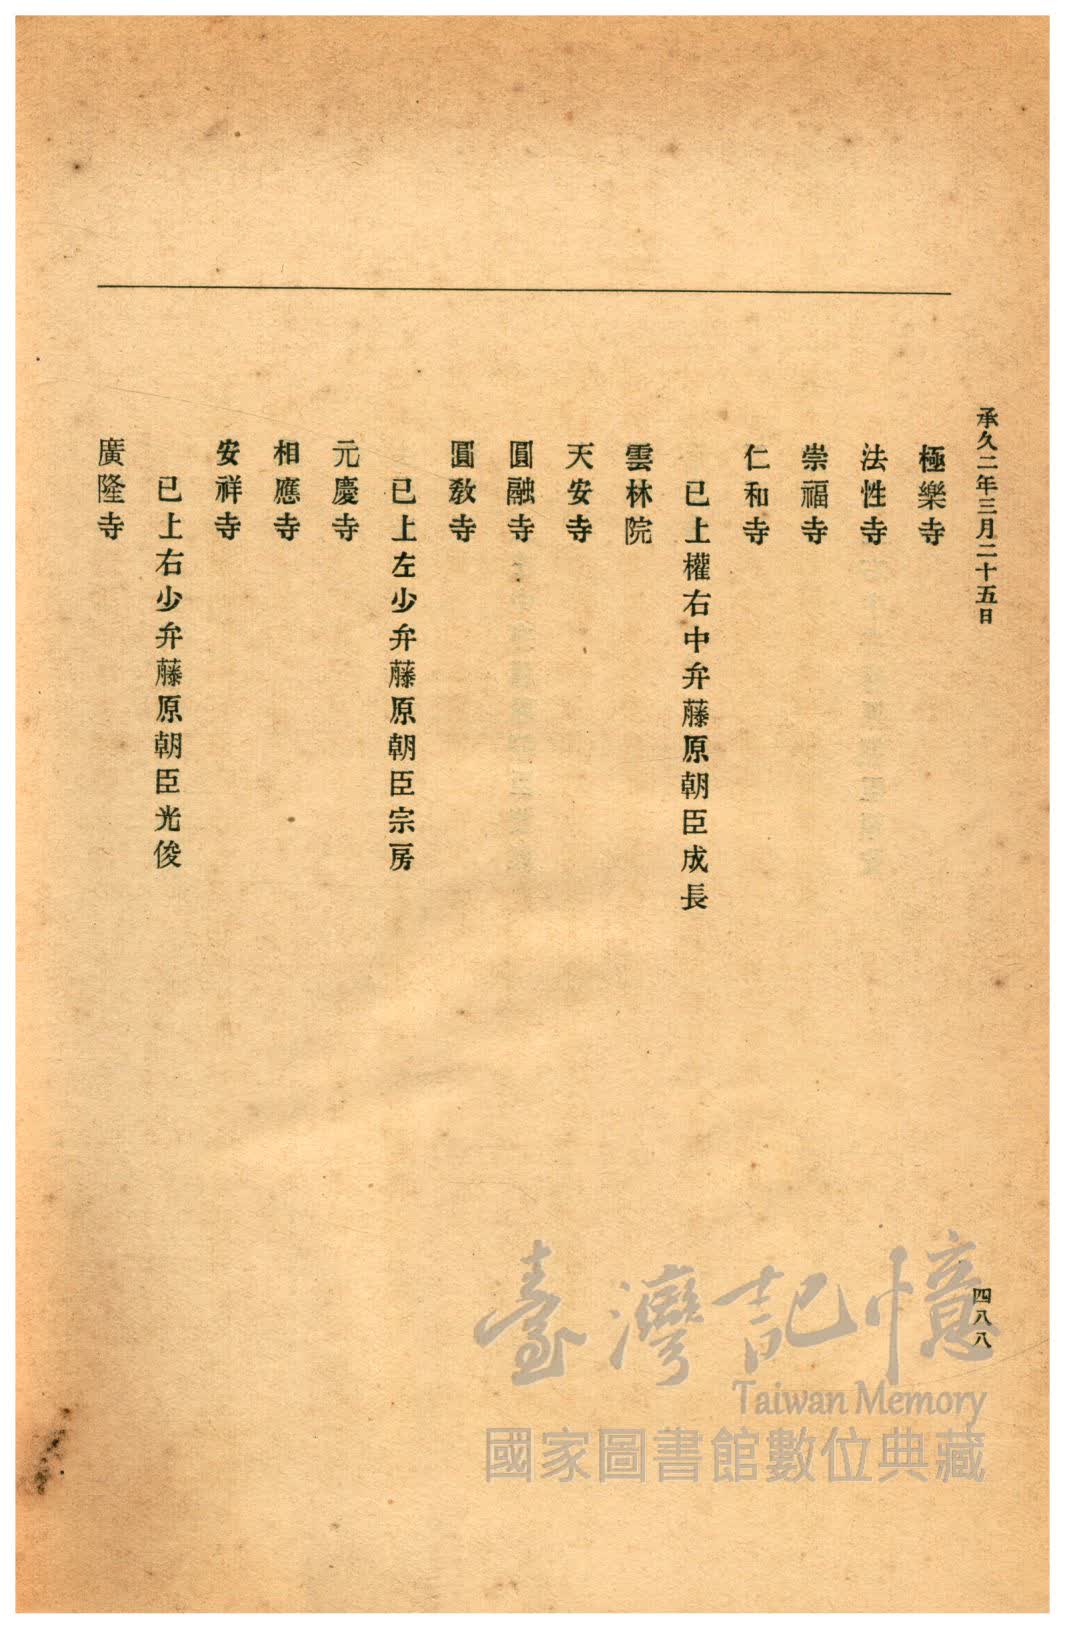 承久二年三月二十五日
極樂寺
法性寺
崇福寺
仁和寺
已上權右中弁藤原朝臣成長
雲林院
天安寺
圓融寺
圓敎寺
已上左少弁藤原朝臣宗房
元慶寺
相應寺
安祥寺
已上右少弁藤原朝臣光俊
廣隆寺
四八八
臺灣記憶
Taiwan Memory
國家圖書館數位典藏